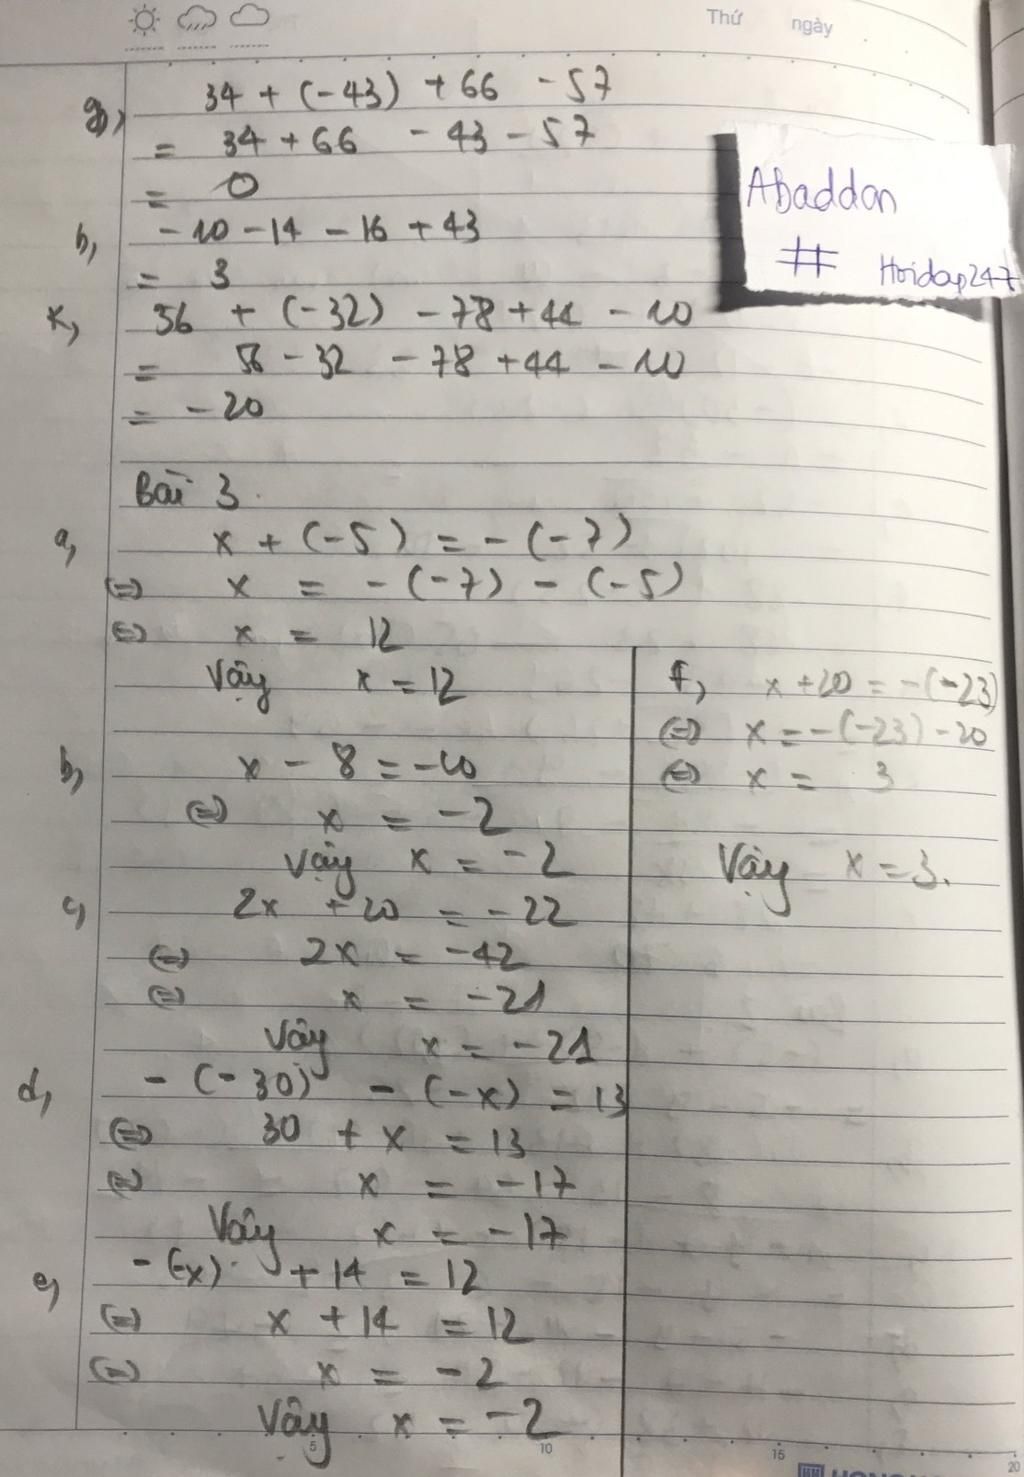 Thứ ngày
g, 34 + (-43) + 66 - 57
= 34 + 66 - 43 - 57
= 0
h, - 10 - 14 - 16 + 43
= 3
k, 56 + (-32) - 78 + 44 - 10
= 56 - 32 - 78 + 44 - 10
= - 20
Abaddon
# Hoidap247
Bài 3.
a, x + (-5) = - (-7)
(=) x = - (-7) - (-5)
(=) x = 12
Vậy x = 12
b, x - 8 = -10
(=) x = -2
Vậy x = -2
c, 2x + 20 = -22
(=) 2x = -42
(=) x = -21
Vậy x = -21
d, - (-30) - (-x) = 13
(=) 30 + x = 13
(=) x = -17
Vậy x = -17
e, - (-x) + 14 = 12
(=) x + 14 = 12
(=) x = -2
Vậy x = -2
f, x + 20 = -(-23)
(=) x = -(-23) - 20
(=) x = 3
Vậy x = 3.
5 10 15 20